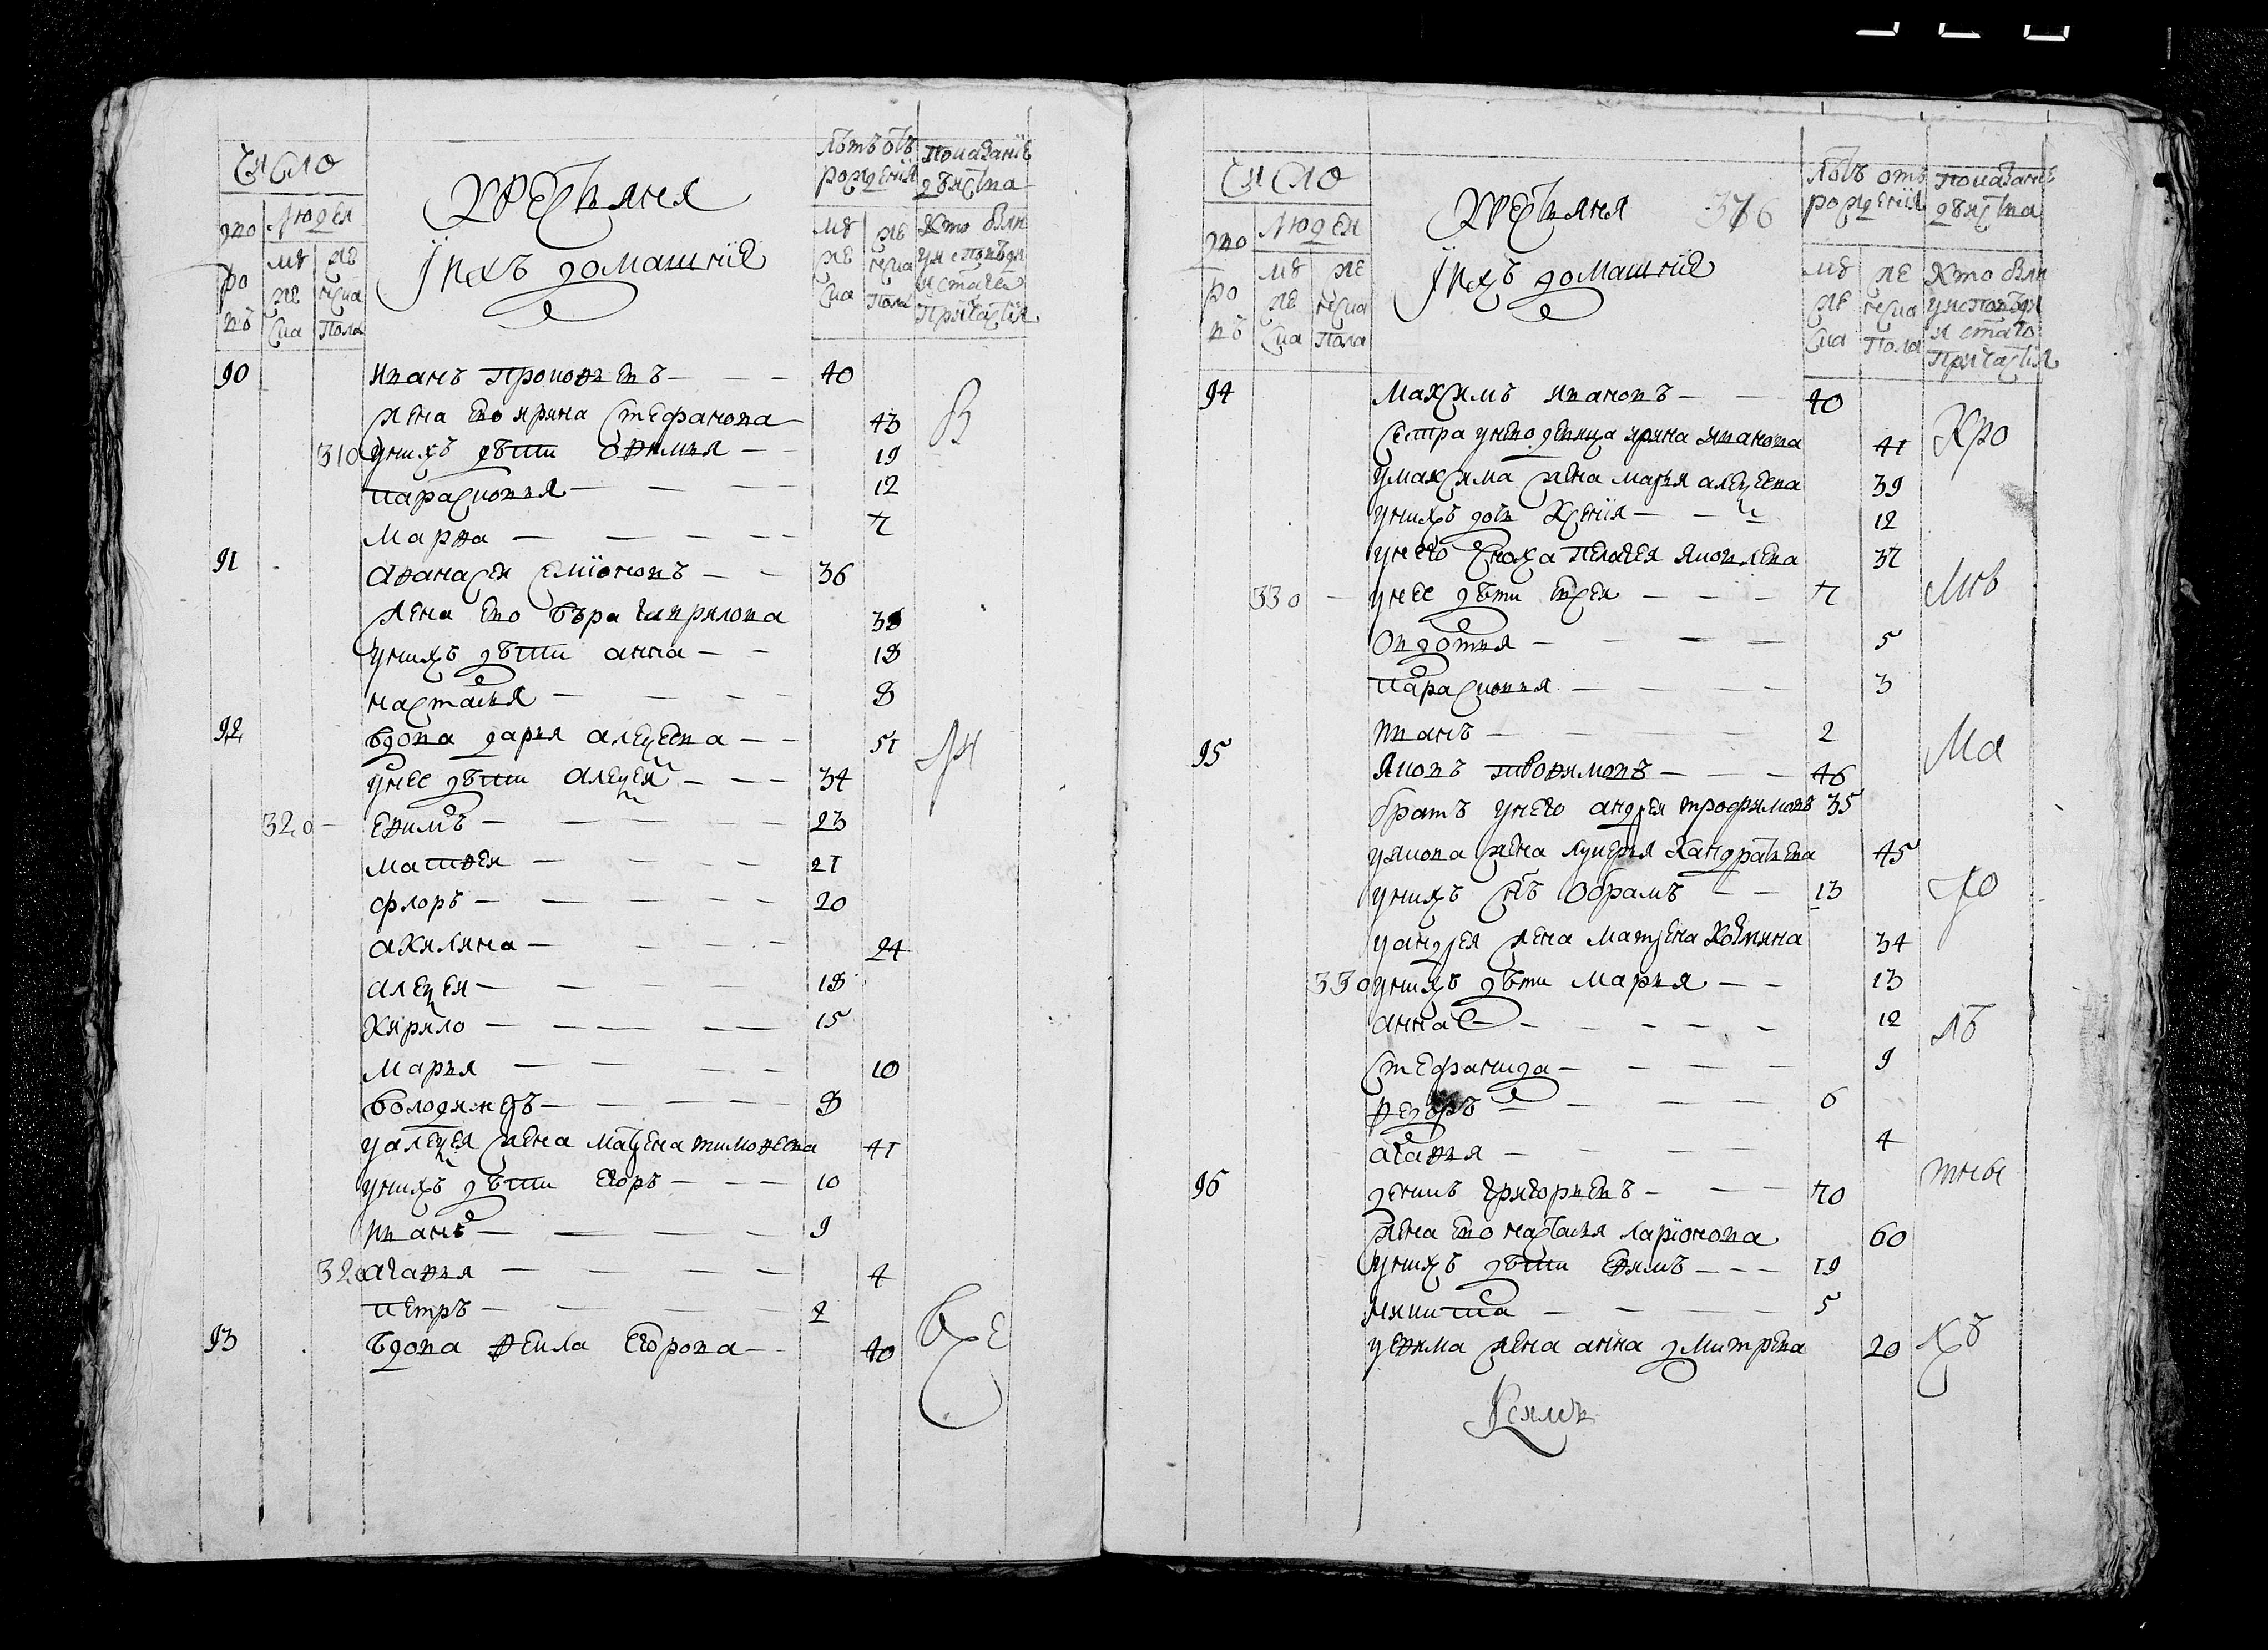 Число
дво
ро
въ
людей
му
же
ска
же
неска
пола
Крестьяня
ихъ домашние
лѣтъ отъ
рождения
му
же
ска
же
неска
пола
показание
действа
кто были
у исповѣди
и святаго
причастия
90 иванъ прокофьевъ — — — 40
жена ево ирина стефанова 43
310 у нихъ дѣти офимья — — 19
парасковья — — — — 12
марфа — — — — — 7
91 афанасей семионовъ — — 36
жена ево вѣра гаврилова 38
у нихъ дѣти анна — — 18
настасья — — — — 8
92 вдова дарья алексеева — — 51
у нее дѣти алексей — — — 34
320 ефимъ — — — — 23
матфей — — — — 21
флоръ — — — — — 20
акилина — — — — 24
алексей — — — — 18
кирило — — — — — 15
марья — — — — 10
володимеръ — — — — 8
у алексея жена матрена тимофеева 41
у нихъ дѣти егоръ — — — 10
иванъ — — — — 9
320 агафья — — — — 4
петръ — — — — 2
93 вдова фекла егорова — — 40
В
ри
Число
дво
ро
въ
людей
му
же
ска
же
неска
пола
Крестьяня 376
ихъ домашние
лѣтъ отъ
рождения
му
же
ска
же
неска
пола
показание
действа
кто были
у исповѣди
и святаго
причастия
94 максимъ ивановъ — — 40
сестра у нево девица ирина иванова 41
у максима жена марья алексеева 39
у нихъ дочь ксения — — — 12
у него сноха пелагея яковлева 37
330 — у нее дѣти евсей — — — 7
овдотья — — — — 5
парасковья — — — — 3
иванъ — — — — 2
95 яковъ трофимовъ — — — 46
братъ у него андрей трофимовъ 35
у якова жена лукерья кандратьева 45
у нихъ снъ обрамъ — — 13
у андрея жена матрена козмина 34
330 у нихъ дѣти марья — — 13
анна — — — — — 12
стефанида — — — — 9
федоръ — — — — 6
агафья — — — — 4
96 денис григорьевъ — — — 70
жена ево настасья ларионова 60
у нихъ дѣти ефимъ — — — 19
никита — — — — 5
у ефима жена анна дмитрева 20
Кро
Ма
лѣ